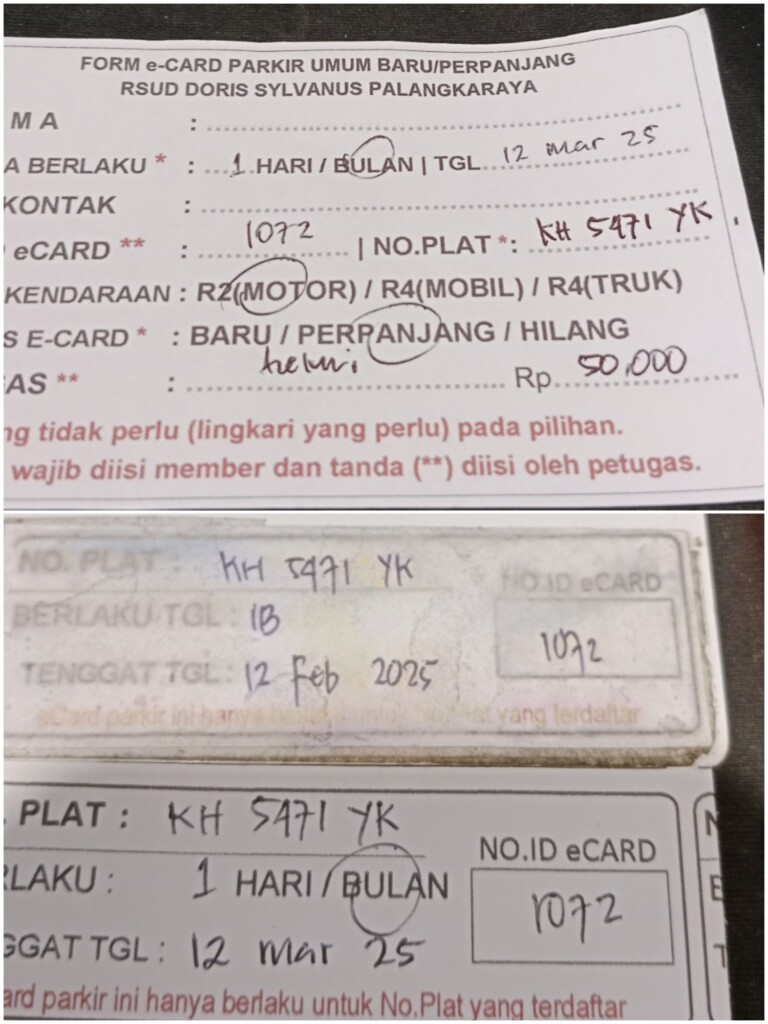 FORM e-CARD PARKIR UMUM BARU/PERPANJANG
RSUD DORIS SYLVANUS PALANGKARAYA
M A :
A BERLAKU * : 1 HARI / BULAN | TGL 12 Mar 25
KONTAK :
eCARD ** : 1072 | NO.PLAT *: KH 5471 YK
KENDARAAN : R2(MOTOR) / R4(MOBIL) / R4(TRUK)
S E-CARD * : BARU / PERPANJANG / HILANG
AS ** : helmi Rp 50.000
ng tidak perlu (lingkari yang perlu) pada pilihan.
wajib diisi member dan tanda (**) diisi oleh petugas.
NO. PLAT : KH 5471 YK
NO.ID eCARD
BERLAKU TGL : 1B
1072
TENGGAT TGL : 12 Feb 2025
eCard parkir ini hanya berlaku untuk No.Plat yang terdaftar
PLAT : KH 5471 YK
NO.ID eCARD
RLAKU : 1 HARI / BULAN
1072
GGAT TGL : 12 Mar 25
ard parkir ini hanya berlaku untuk No.Plat yang terdaftar